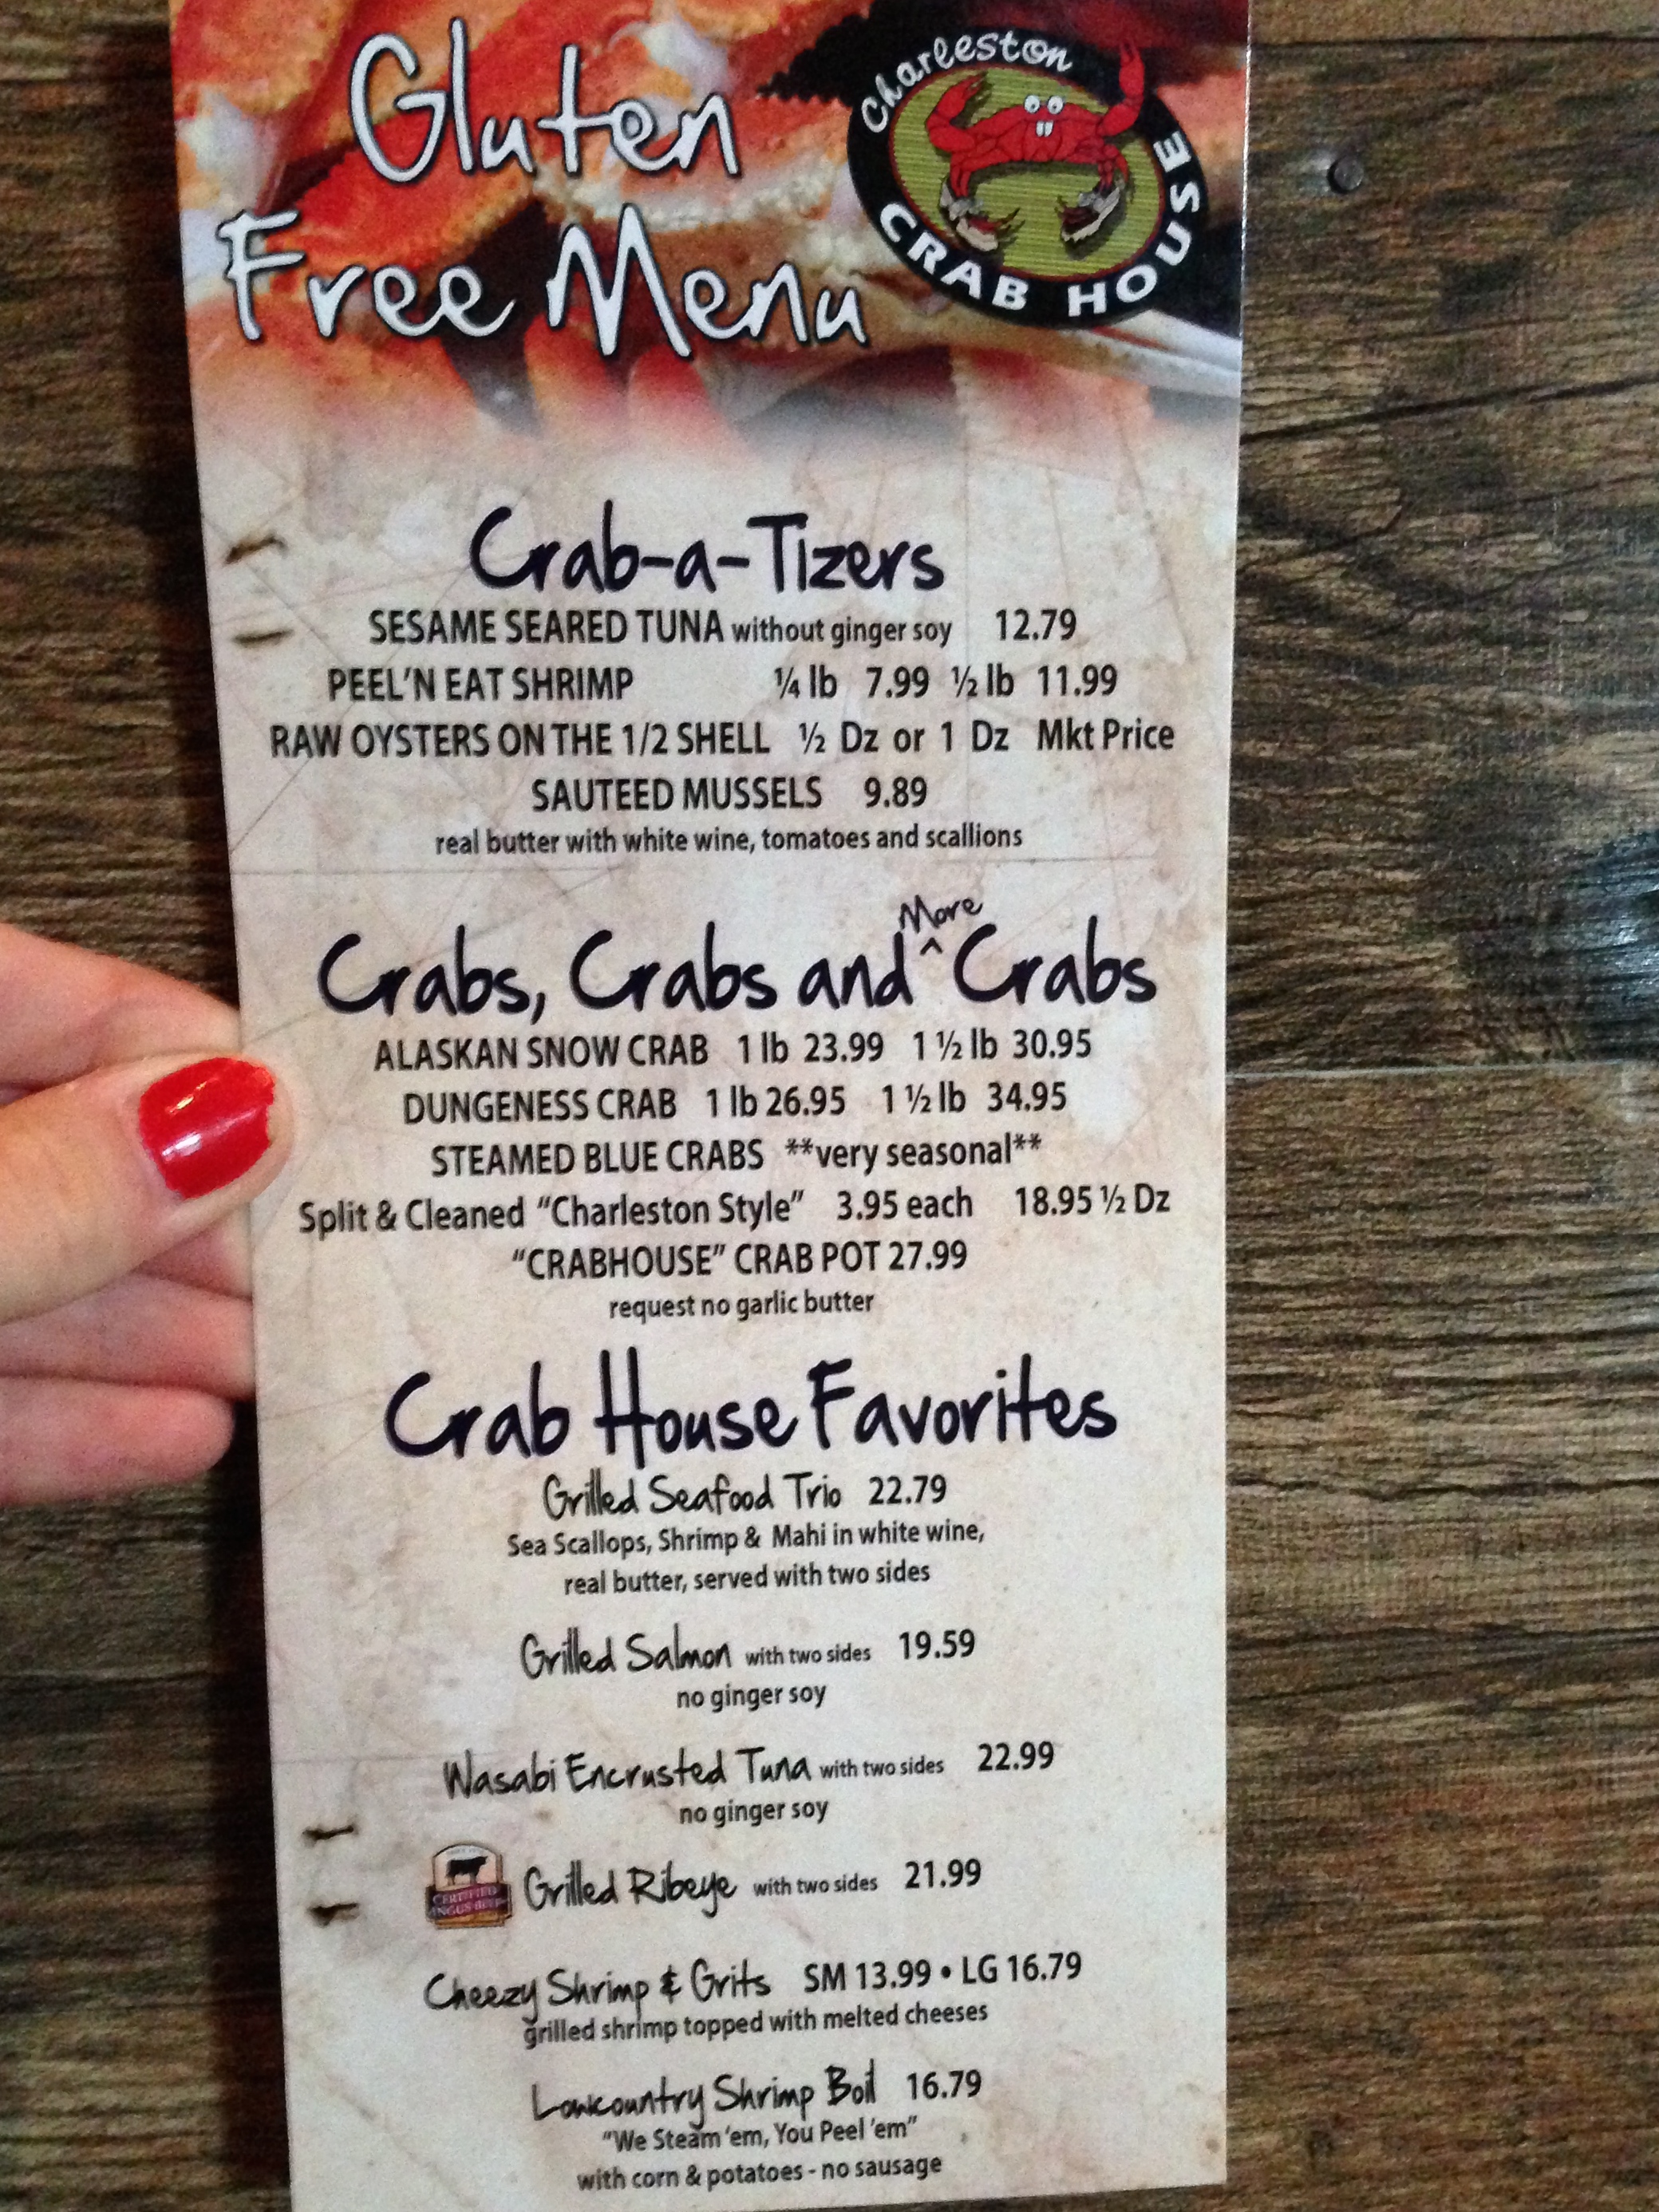 Gluten
Free Menu
Charleston
CRAB HOUSE
Crab-a-Tizers
SESAME SEARED TUNA without ginger soy 12.79
PEEL'N EAT SHRIMP ¼ lb 7.99 ½ lb 11.99
RAW OYSTERS ON THE 1/2 SHELL ½ Dz or 1 Dz Mkt Price
SAUTEED MUSSELS 9.89
real butter with white wine, tomatoes and scallions
More
Crabs, Crabs and ^ Crabs
ALASKAN SNOW CRAB 1 lb 23.99 1 ½ lb 30.95
DUNGENESS CRAB 1 lb 26.95 1 ½ lb 34.95
STEAMED BLUE CRABS **very seasonal**
Split & Cleaned "Charleston Style" 3.95 each 18.95 ½ Dz
"CRABHOUSE" CRAB POT 27.99
request no garlic butter
Crab House Favorites
Grilled Seafood Trio 22.79
Sea Scallops, Shrimp & Mahi in white wine,
real butter, served with two sides
Grilled Salmon with two sides 19.59
no ginger soy
Wasabi Encrusted Tuna with two sides 22.99
no ginger soy
CERTIFIED
ANGUS BEEF
Grilled Ribeye with two sides 21.99
Cheezy Shrimp & Grits SM 13.99 • LG 16.79
grilled shrimp topped with melted cheeses
Lowcountry Shrimp Boil 16.79
"We Steam 'em, You Peel 'em"
with corn & potatoes - no sausage